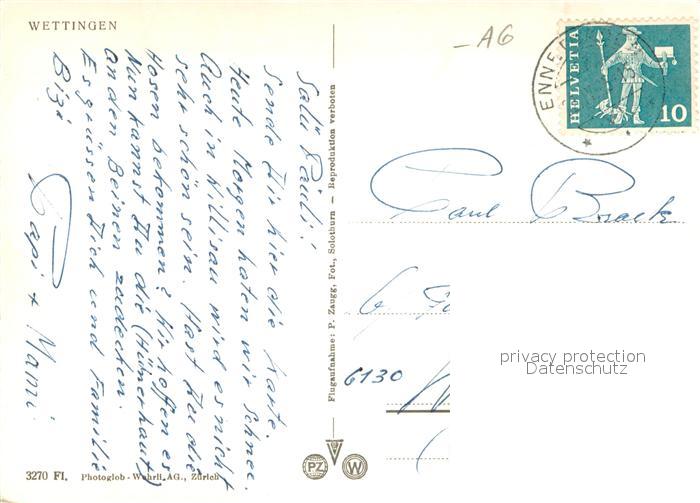 WETTINGEN
- AG
ENNE
HELVETIA
10
Salü Päuli!
Sende Dir hier die Karte.
Heute Morgen haten wir Schnee.
Auch in Willisau wird es nicht
sehr schön sein. Hast Du die
Hosen bekommen? Wir hoffen es
Nun kannst Du die (Hühnerhaut)
an den Beinen zudecken.
Es grüssen Dich und Familie
Bizi
Papi + Mammi
Flugaufnahme: P. Zaugg, Fot., Solothurn — Reproduktion verboten
Paul
6
6130 W
privacy protection
Datenschutz
PZ W
3270 Fl. Photoglob-Wehrli AG., Zürich